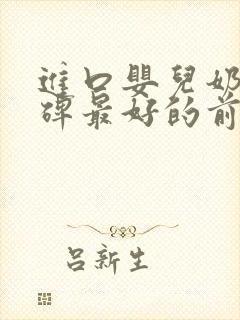 進口嬰兒奶
碑最好的前
呂新生